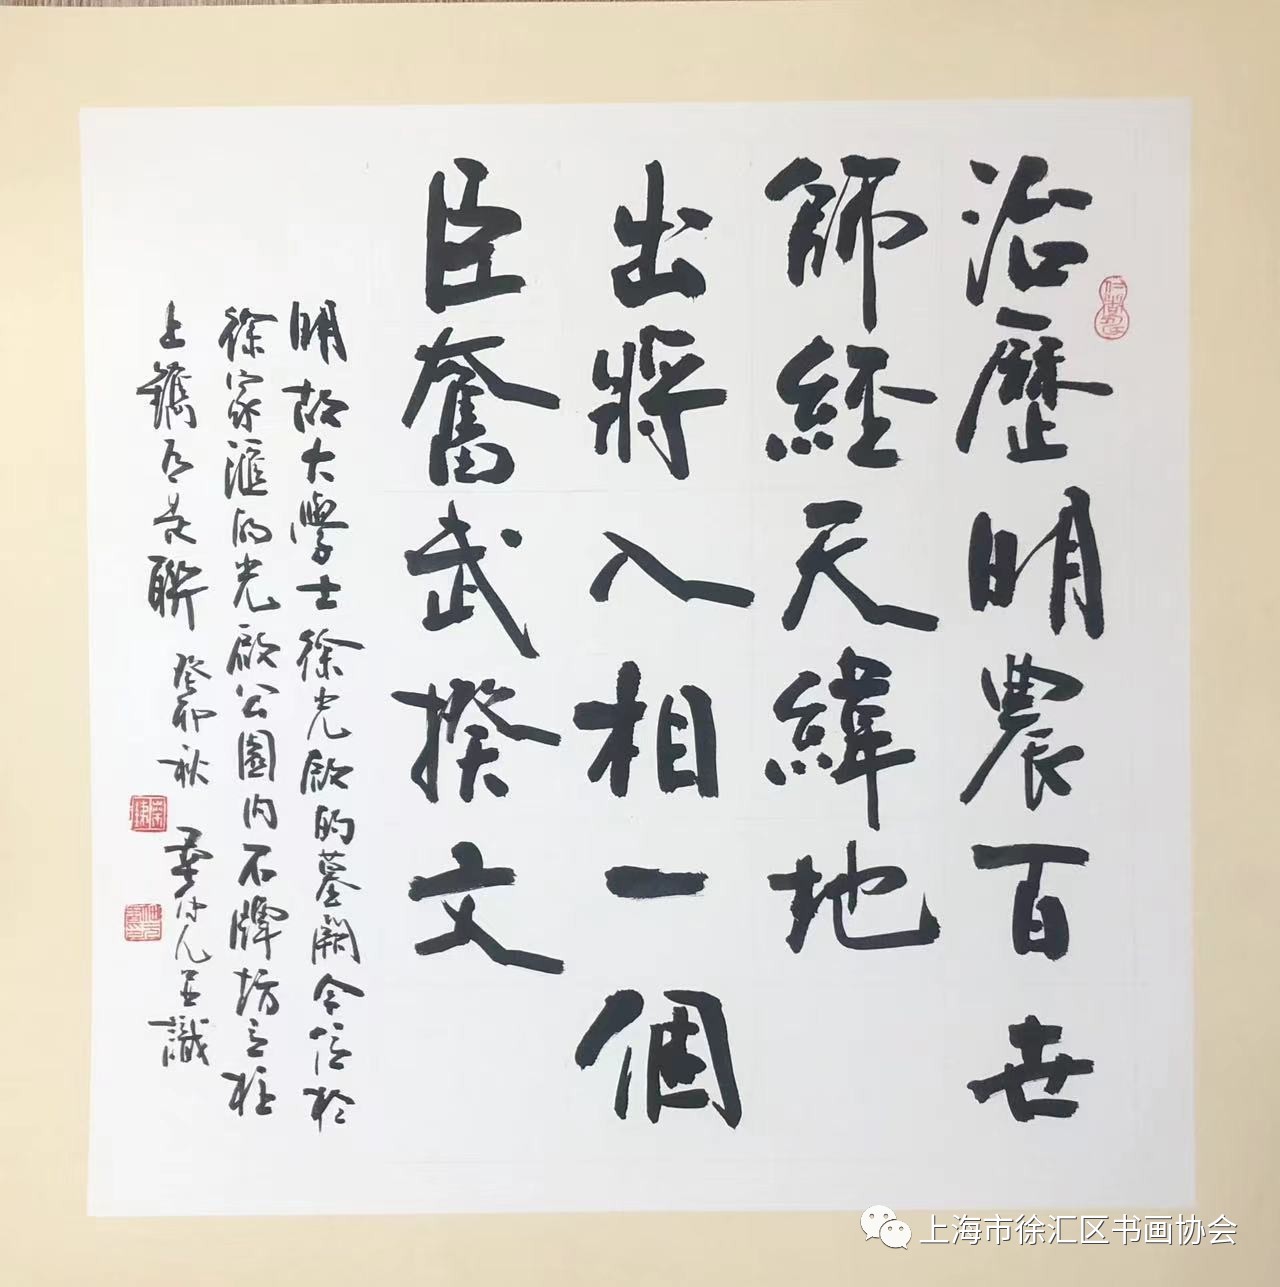 治歷明農百世
師經天緯地
出將入相一個
臣奮武揆文
明故大學士徐光啟的墓闕今位於
徐家滙的光啟公園内石牌坊立柱
上鐫有是聯 癸卯秋
並識
上海市徐汇区书画协会